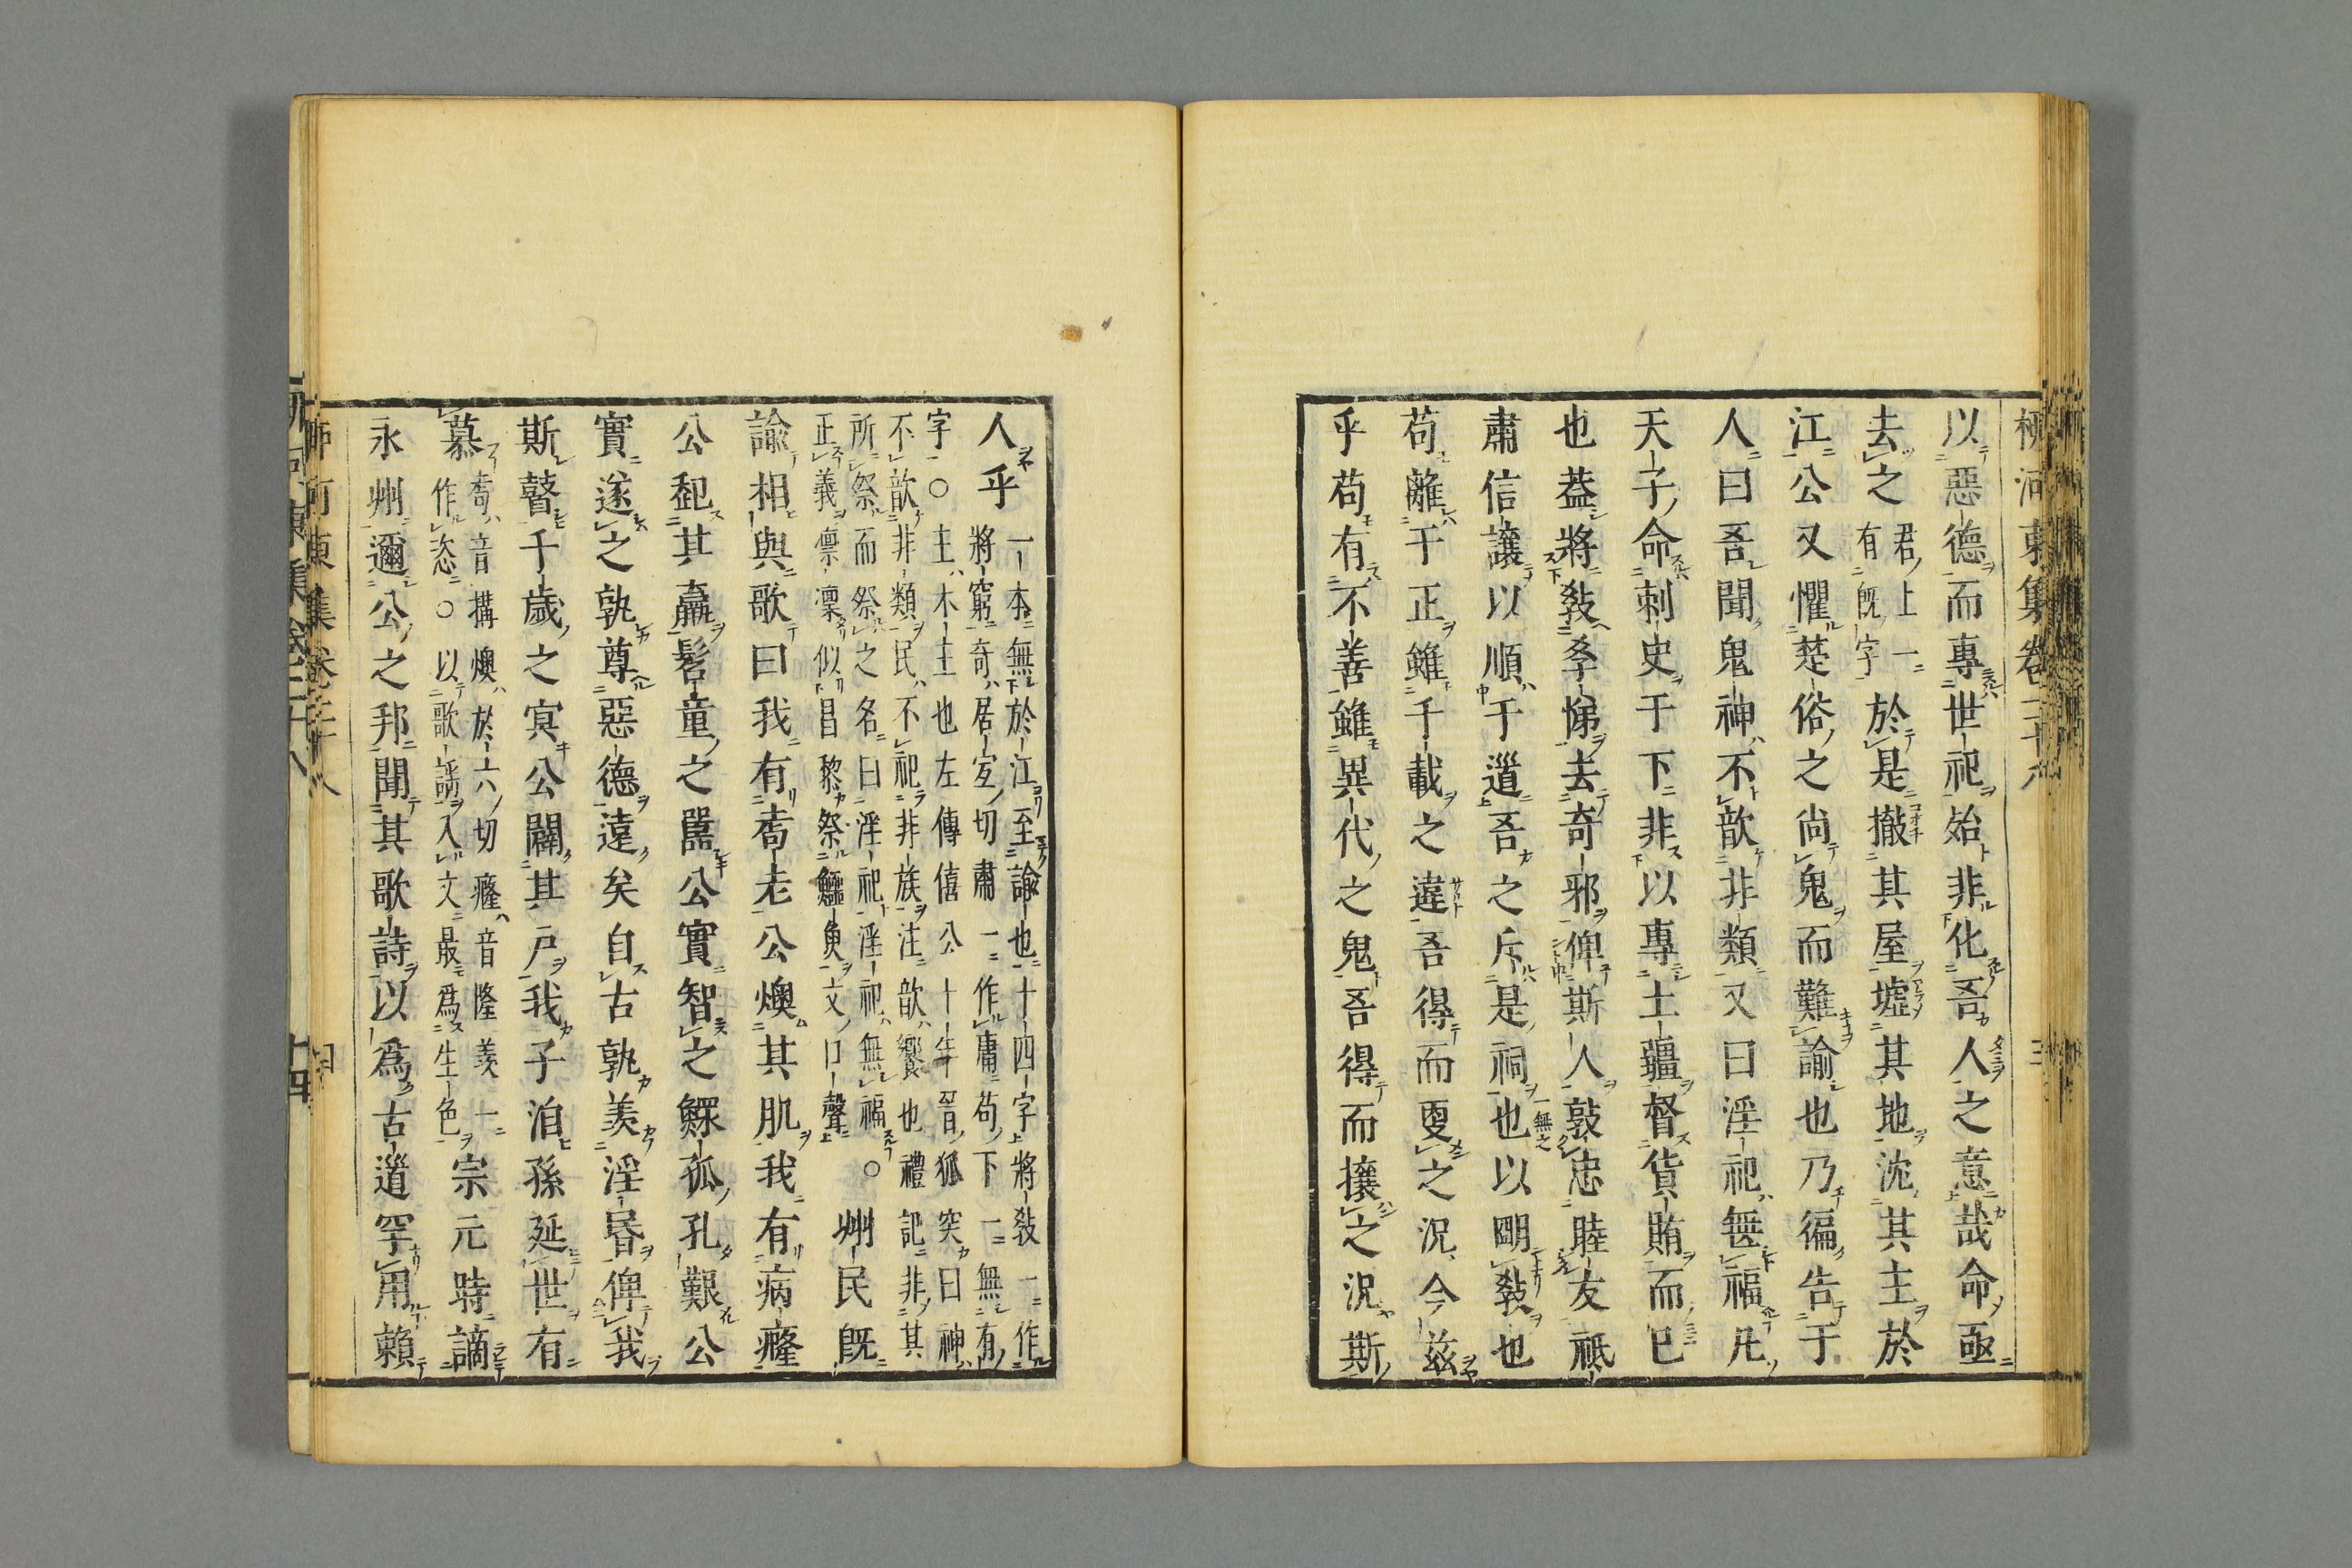 柳河東集卷二十八
以惡德而專世祀殆非化吾人之意哉命亟
去之君上一有旣字於是撤其屋墟其地沈其主於
江公又懼楚俗之尚鬼而難諭也乃徧告于
人曰吾聞鬼神不歆非類又曰淫祀無福凡
天子命刺史于下非以專土疆督貨賄而已
也葢將敎孝悌去奇邪俾斯人敦忠睦友祗
肅信讓以順于道吾之斥是祠也以明敎也
一無之
苟離于正雖千載之違吾得而更之況今茲
乎苟有不善雖異代之鬼吾得而攘之況斯
人乎一本無於江至諭也十四字將敎一作
將窮奇居宜切肅一作庸苟下一無有
字○主木主也左傳僖公十年晉狐突曰神
不歆非類民不祀非族注歆饗也禮記非其
所祭而祭之名曰淫祀淫祀無福○
正義凛凛似昌黎祭鱷魚文口聲
州民旣
諭相與歌曰我有耇老公燠其肌我有病癃
公起其羸髫童之嚚公實智之鰥孤孔艱公
實遂之孰尊惡德遠矣自古孰羨淫昬俾我
斯瞽千歲之冥公闢其戸我子洎孫延世有
慕耇音搆燠於六切癃音隆羨一
作恣○以歌謡入文最爲生色
宗元時謫
永州邇公之邦聞其歌詩以爲古道罕用賴
柳河東集卷二十八
十四